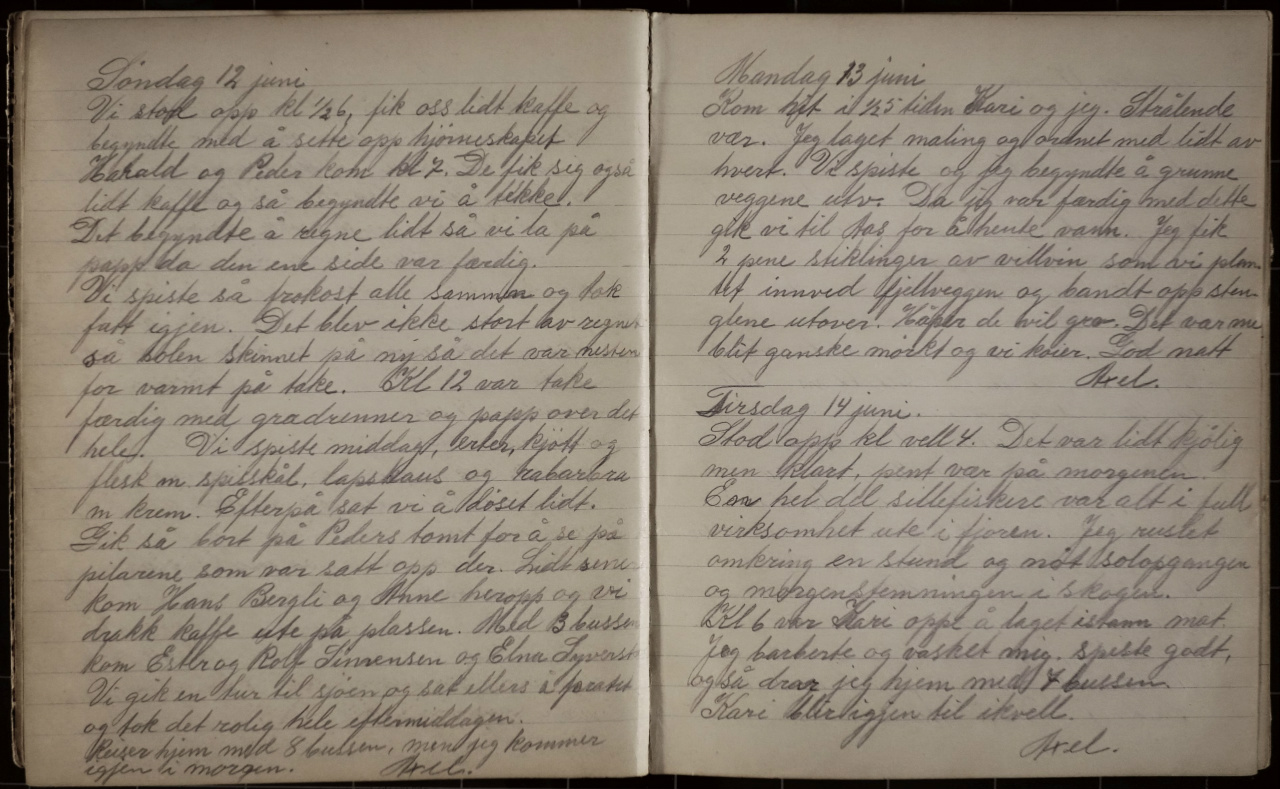 Søndag 12 juni
Vi stod opp kl ½6, fik oss lidt kaffe og
begyndte med å sette opp hjørneskapet
Harald og Peder kom kl 7. De fik sig også
lidt kaffe og så begyndte vi å tekke.
Det begyndte å regne lidt så vi la på
papp da den ene side var færdig.
Vi spiste så frokost alle sammen og tok
fatt igjen. Det blev ikke stort av regnet
så solen skinnet på ny så det var nesten
for varmt på take. Kl 12 var take
færdig med gradrenner og papp over det
hele. Vi spiste middag, erter, kjøtt og
flesk m spisskål, lapskaus og rabarbra
m krem. Efterpå sat vi å døset lidt.
Gik så bort på Peders tomt for å se på
pilarene som var satt opp der. Lidt sene
kom Hans Bergli og Anne heropp og vi
drakk kaffe ute på plassen. Med 3 bussen
kom Ester og Rolf Simensen og Elna Syverst
Vi gik en tur til sjøen og sat ellers å pratet
og tok det rolig hele eftermiddagen.
Reiser hjem med 8 bussen, men jeg kommer
igjen i morgen. Axel.
Mandag 13 juni
Kom hit i ½5 tiden Kari og jeg. Strålende
vær. Jeg laget maling og ordnet med lidt av
hvert. Vi spiste og jeg begyndte å grunne
veggene utv. Da jeg var færdig med dette
gik vi til Aas for å hente vann. Jeg fik
2 pene stiklinger av villvin som vi plan-
tet innved fjellveggen og bandt opp sten-
glene utover. Håper de vil gro. Det var nu
blit ganske mørkt og vi køier. God natt
Axel.
Tirsdag 14 juni.
Stod opp kl vell 4. Det var lidt kjølig
men klart, pent vær på morgenen.
En hel del sillefiskere var alt i full
virksomhet ute i fjoren. Jeg ruslet
omkring en stund og nøt solopgangen
og morgenstemningen i skogen.
Kl 6 var Kari oppe å laget istann mat.
Jeg barberte og vasket mig, spiste godt,
og så drar jeg hjem med 7 bussen.
Kari blir igjen til ikvell.
Axel.